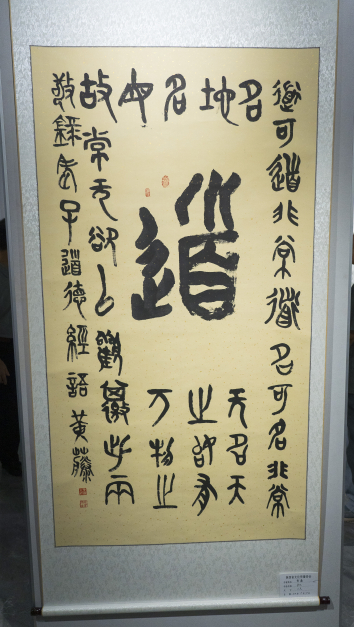 道可道非常道名可名非常
名
无名天
地
之始有
名
万物之
母
道
故常无欲以觀徼此兩
敬録老子道德經語黄藤